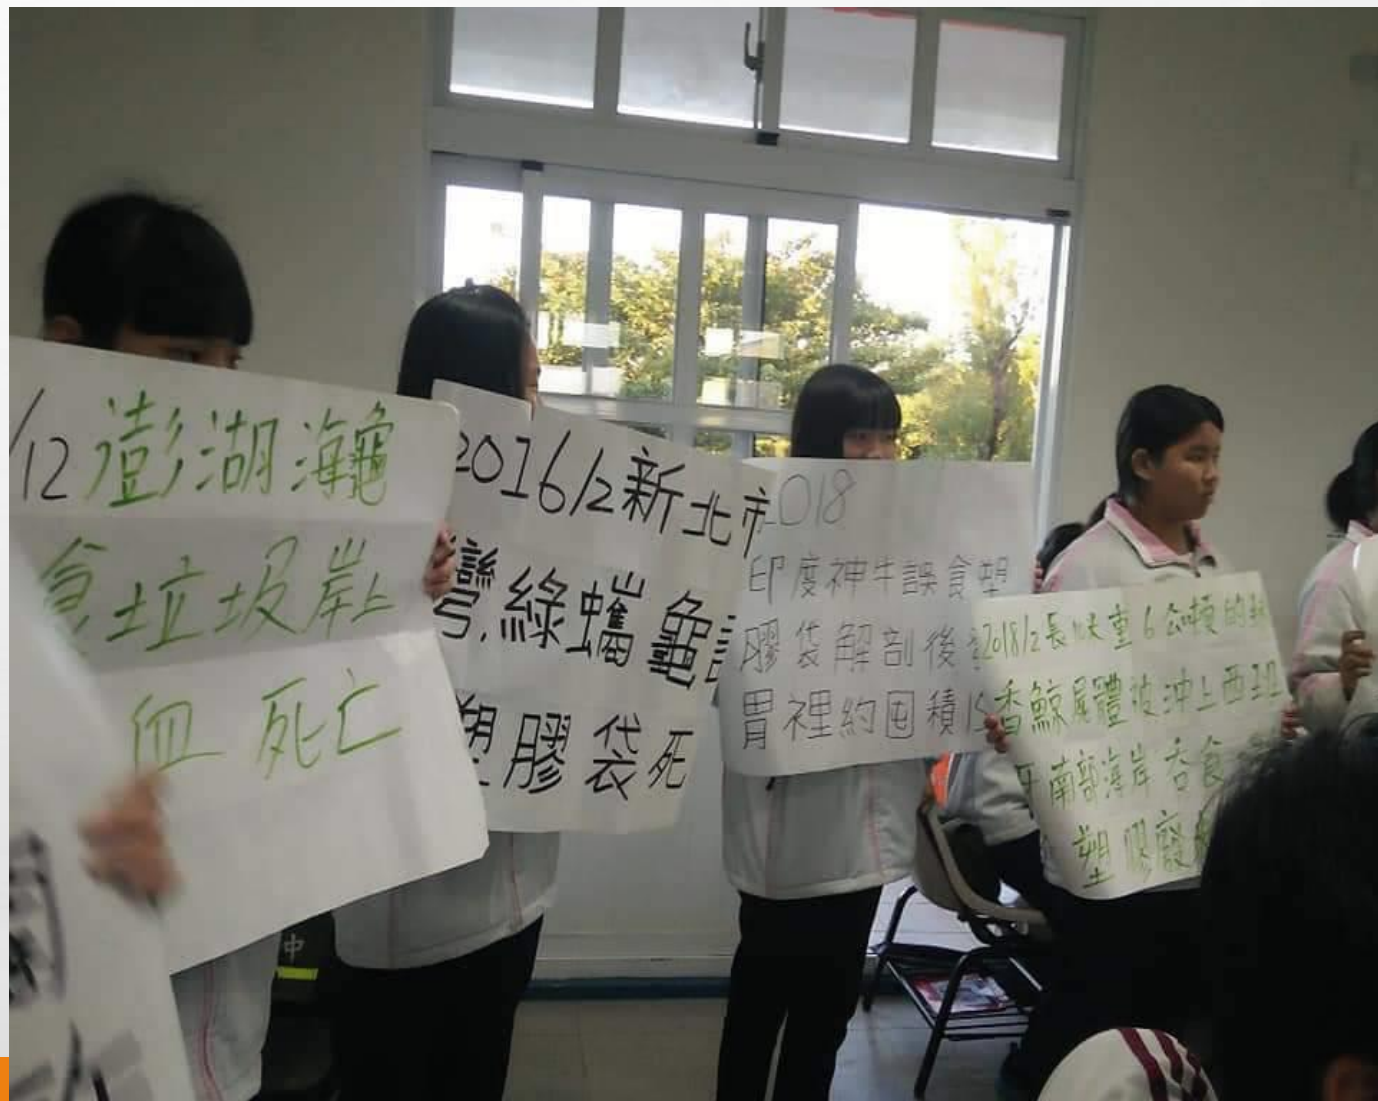 /12 澎湖海龜
食垃圾岸上
血 死亡
2016/2新北市
灣.綠蠵龜誤
塑膠袋死
2018
印度神牛誤食塑
膠袋解剖後
胃裡約囤積15
2018/2長10米重6公噸的抹
香鯨屍體被沖上西班
牙南部海岸吞食
塑膠廢
中